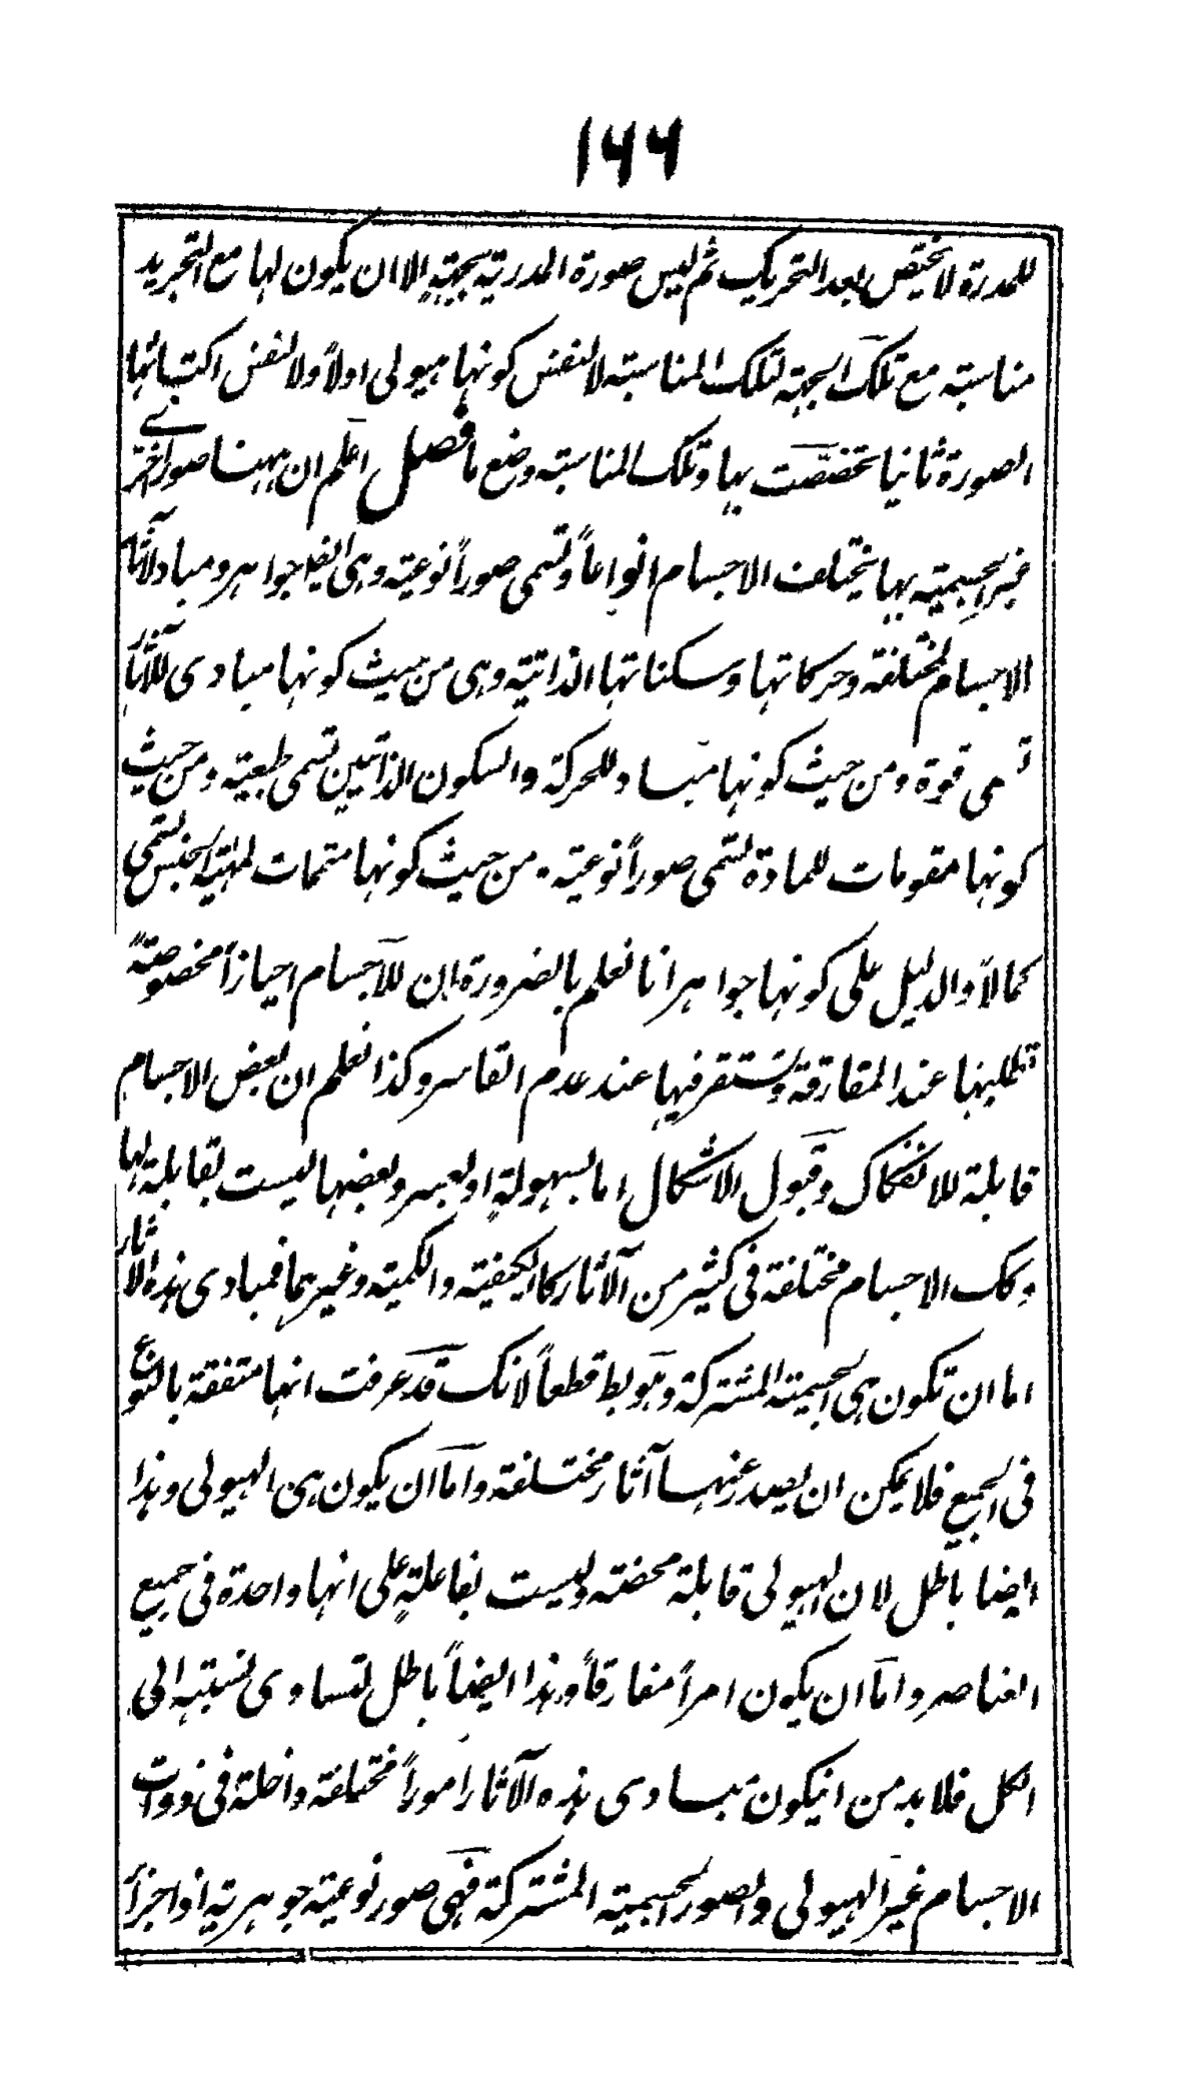 ۱۶۶
للمدرة لا يختص بعد التحريك ثم ليس صورة المدرية بجهةٍ الا ان يكون لها مع التجريد
مناسبته مع تلك الجهة لتلك المناسبته لا لنفس كونها هيولى اولاً ولا لنفس اكتسائها
الصورة ثانيا تخصصت بها وتلك المناسبته وضع ما فصل اعلم ان ههنا صوراً اخرے
غير الجسمية بها يختلف الاجسام انواعاً وتسمى صوراً نوعية وهى ايضا جواهر ومباد لآثار
الاجسام المختلفة وحركاتها وسكناتها الذاتية وهى من حيث كونها مبادى للآثار
تسمى قوة ومن حيث كونها مباد للحركة والسكون الذاتيين تسمى طبعية ومن حيث
كونها مقومات للمادة تسمى صوراً نوعية ومن حيث كونها متممات لمهية الجنس تسمى
كمالاً والدليل على كونها جواهر انا نعلم بالضرورة ان للاجسام احيازاً مخصوصةً
تطلبها عند المفارقة وتستقر فيها عند عدم القاسر وكذا نعلم ان بعض الاجسام
قابلة للانفكاك وقبول الاشكال اما بسهولةٍ او بعسر وبعضها ليست بقابلة لها
وتلك الاجسام مختلفة فى كثير من الآثار كالكيفية والكمية وغيرهما فمبادى هذه الآثار
اما ان تكون هى الجسمية المشتركة وهو بط قطعاً لانك قد عرفت انها متفقة بالنوع
فى الجميع فلا يمكن ان يصدر عنها آثار مختلفة واما ان يكون هى الهيولى وهذا
ايضا باطل لان الهيولى قابلة محضته وليست بفاعلةٍ على انها واحدة فى جميع
العناصر واما ان يكون امراً مفارقاً وهذا ايضاً باطل لتساوى نسبته الى
الكل فلا بد من انيكون مبادى هذه الآثار اموراً مختلفة داخلة فى ذوات
الاجسام غير الهيولى والصور الجسمية المشتركة فهى صور نوعية جوهرية اذ اجزأ